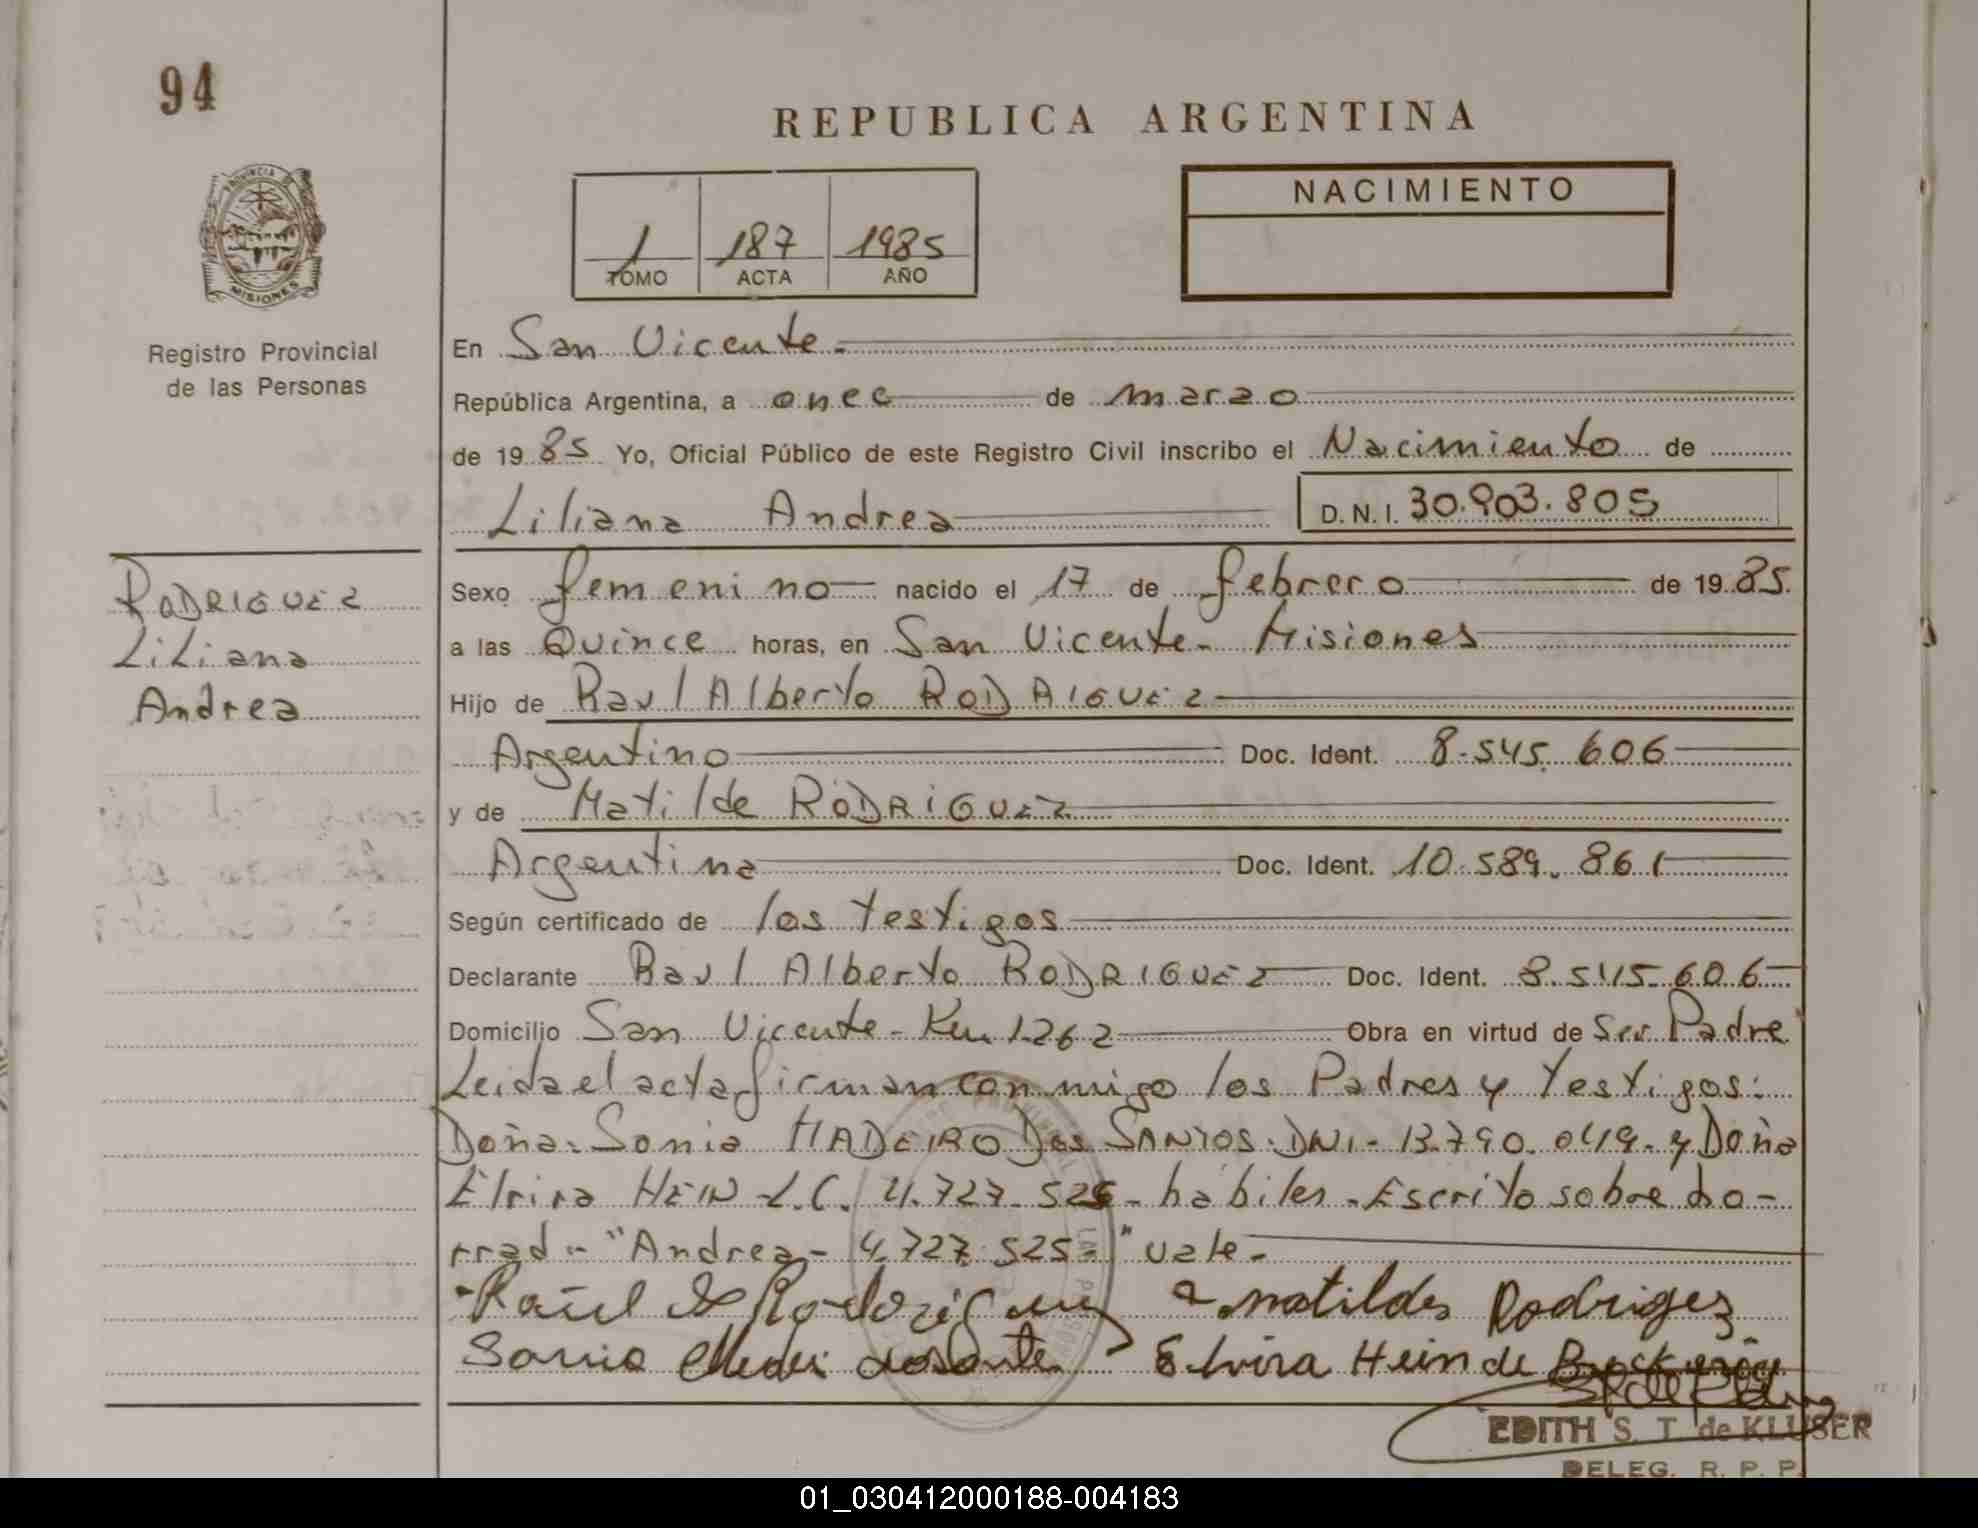 94
REPUBLICA ARGENTINA
PROVINCIA D
MISIONES
Registro Provincial
de las Personas
1 187 1985
TOMO ACTA AÑO
NACIMIENTO
En San Vicente.
República Argentina, a once de marzo
de 1985 Yo, Oficial Público de este Registro Civil inscribo el Nacimiento de
Liliana Andrea D.N.I. 30.903.805
RODRIGUEZ
Liliana
Andrea
Sexo femenino nacido el 17 de febrero de 1985.
a las Quince horas, en San Vicente - Misiones
Hijo de Raul Alberto RODRIGUEZ
Argentino Doc. Ident. 8.545.606
y de Matilde RODRIGUEZ
Argentina Doc. Ident. 10.589.861
Según certificado de los testigos
Declarante Raul Alberto RODRIGUEZ Doc. Ident. 8.545.606
Domicilio San Vicente - Km 1262 Obra en virtud de Ser Padre
Leida el acta firman conmigo los Padres y testigos:
Doña: Sonia MADEIRO Dos SANTOS. DNI - 13.790.049 - y Doña
Elvira HEIN - L.C. 4.727.525 - hábiles - Escrito sobre bo-
rrad - "Andrea - 4.727.525 -" vale -
Raúl A Rodriguez Matildes Rodriges
Sonia dos Santos Elvira Hein de
EDITH S. T. de KLUSER
DELEG. R. P. P.
01_030412000188-004183